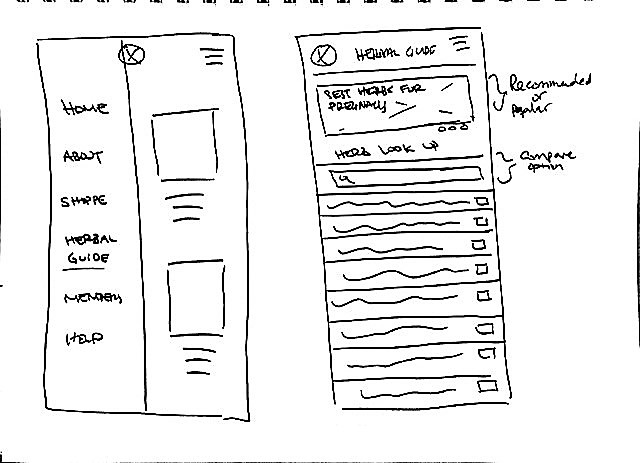 X
HOME
ABOUT
SHOPPE
HERBAL
GUIDE
MEMBERS
HELP
X
HERBAL GUIDE
BEST HERBS FOR
PREGNANCY
HERB LOOK UP
Recommended
or
Popular
Compare
option